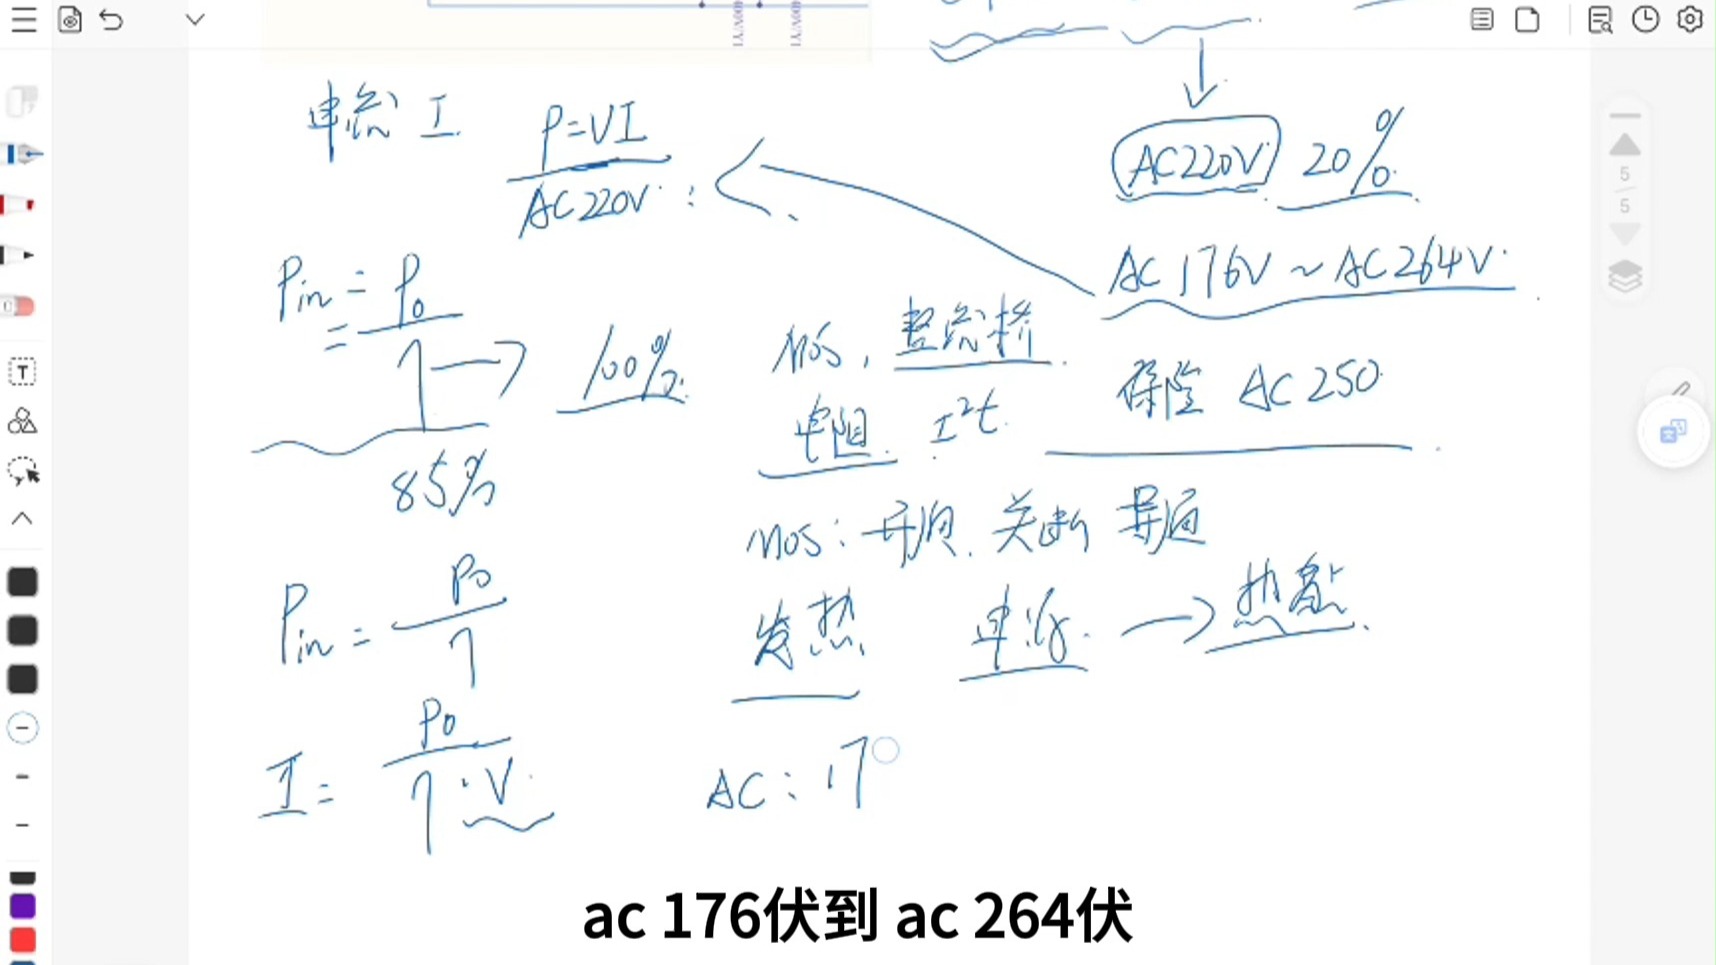 电流 I
P=VI
AC220V:
AC220V 20%
AC 176V ~ AC264V
Pin = Po
= η → 100%
85%
MOS, 整流桥
电阻 I²t
保险 AC 250
MOS: 开通. 关断 导通
发热 电流. → 热量
Pin = Po
η
I = Po
η · V
AC: 17
ac 176伏到 ac 264伏
5
5
T